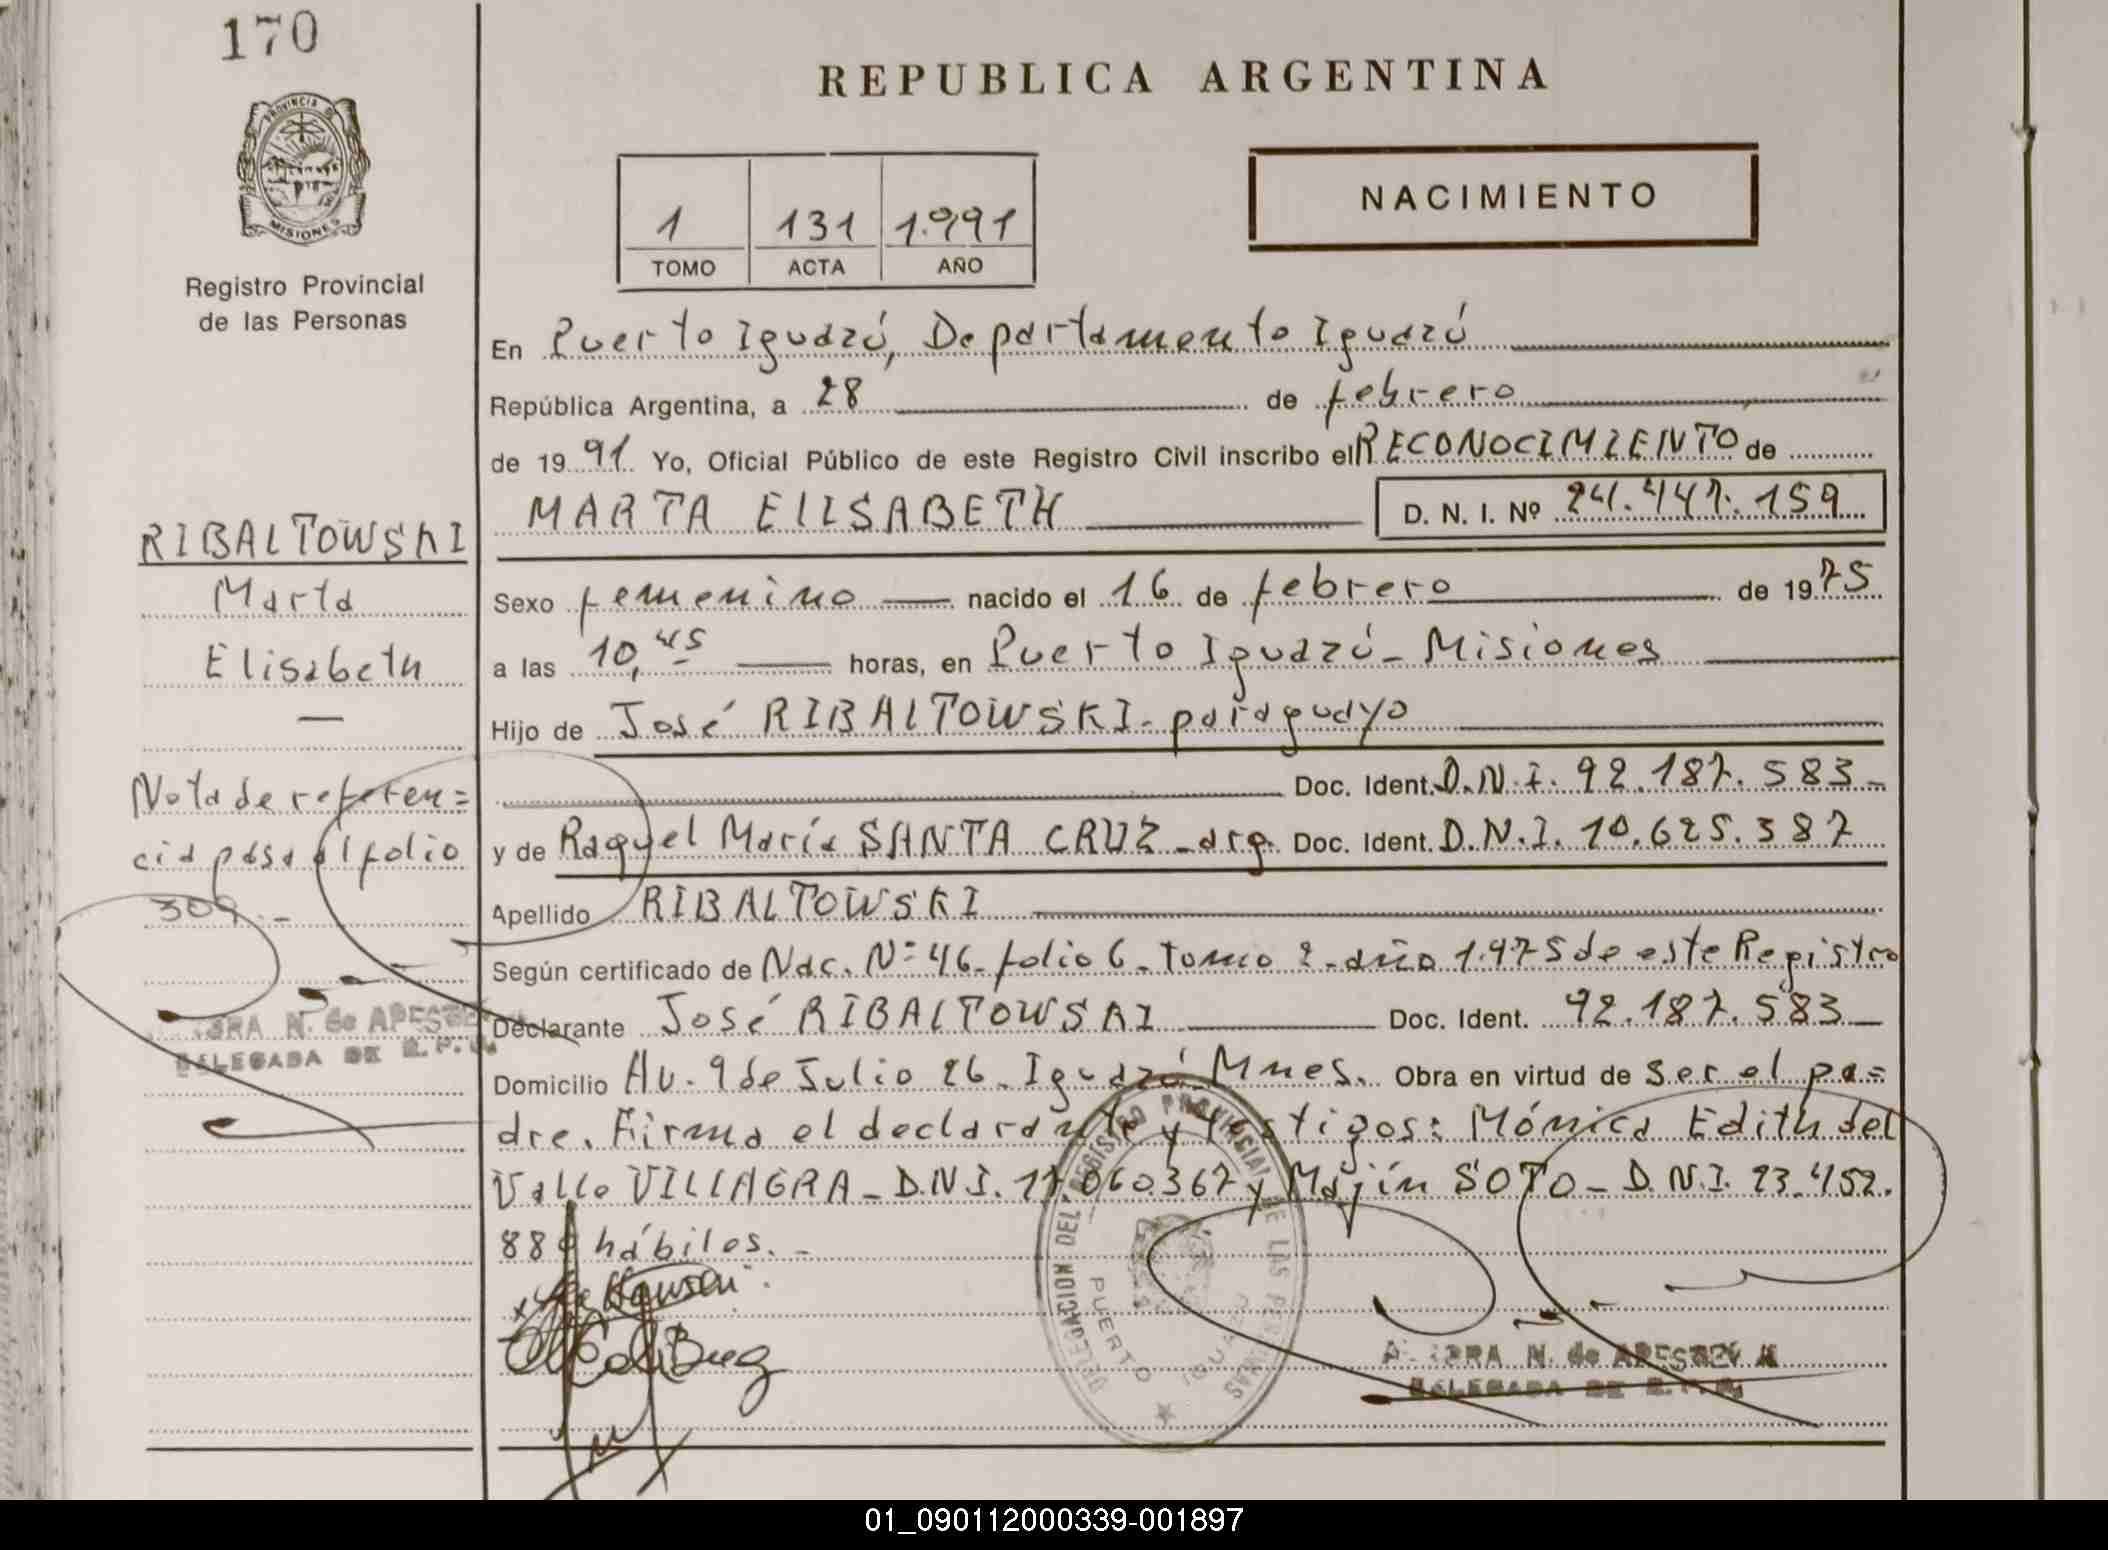 170
REPUBLICA ARGENTINA
PROVINCIA DE
MISIONES
Registro Provincial
de las Personas
1 131 1.991
TOMO ACTA AÑO
NACIMIENTO
En Puerto Iguazú, Departamento Iguazú
República Argentina, a 28 de febrero
de 1991. Yo, Oficial Público de este Registro Civil inscribo el RECONOCIMIENTO de
MARTA ELISABETH D. N. I. Nº 24.447.159
RIBALTOWSKI
Marta
Elisabeth
Sexo femenino nacido el 16 de febrero de 1975
a las 10,45 horas, en Puerto Iguazú - Misiones
Hijo de José RIBALTOWSKI - paraguayo
Doc. Ident. D.N.I. 92.187.583 -
y de Raquel María SANTA CRUZ - arg. Doc. Ident. D.N.I. 10.625.387
Apellido RIBALTOWSKI
Nota de referen=
cia pasa al folio
309.-
Según certificado de Nac. Nº 46 - folio 6 - Tomo 2 - año 1.975 de este Registro
Declarante José RIBALTOWSKI Doc. Ident. 92.187.583
Domicilio Av. 9 de Julio 26 - Iguazú - Mnes. Obra en virtud de ser el pa=
dre. Firma el declarante y testigos: Mónica Edith del
Valle VILLAGRA - D.N.I. 17.060.367 y Majín SOTO - D.N.I. 23.452.
880 hábiles. -
N. de
DELEGADA DE R.P.
DELEGACION DEL REGISTRO PROVINCIAL DE LAS PERSONAS
PUERTO IGUAZU
N. de
DELEGADA DE R.P.
01_090112000339-001897